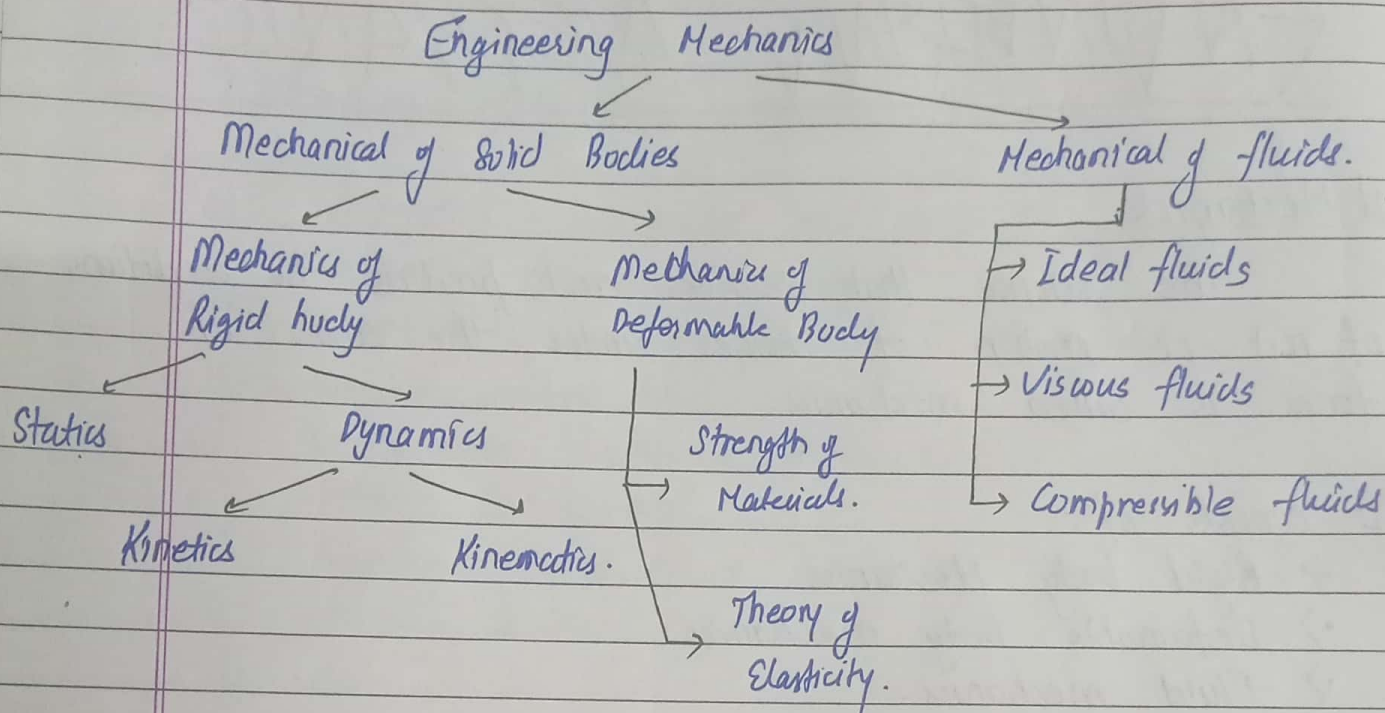 Engineering Mechanics
Mechanical of Solid Bodies
Mechanical of fluids.
Mechanics of
Rigid body
Mechanics of
Deformable Body
Ideal fluids
Viscous fluids
Compressible fluids
Statics
Dynamics
Strength of
Materials.
Kinetics
Kinematics.
Theory of
Elasticity.